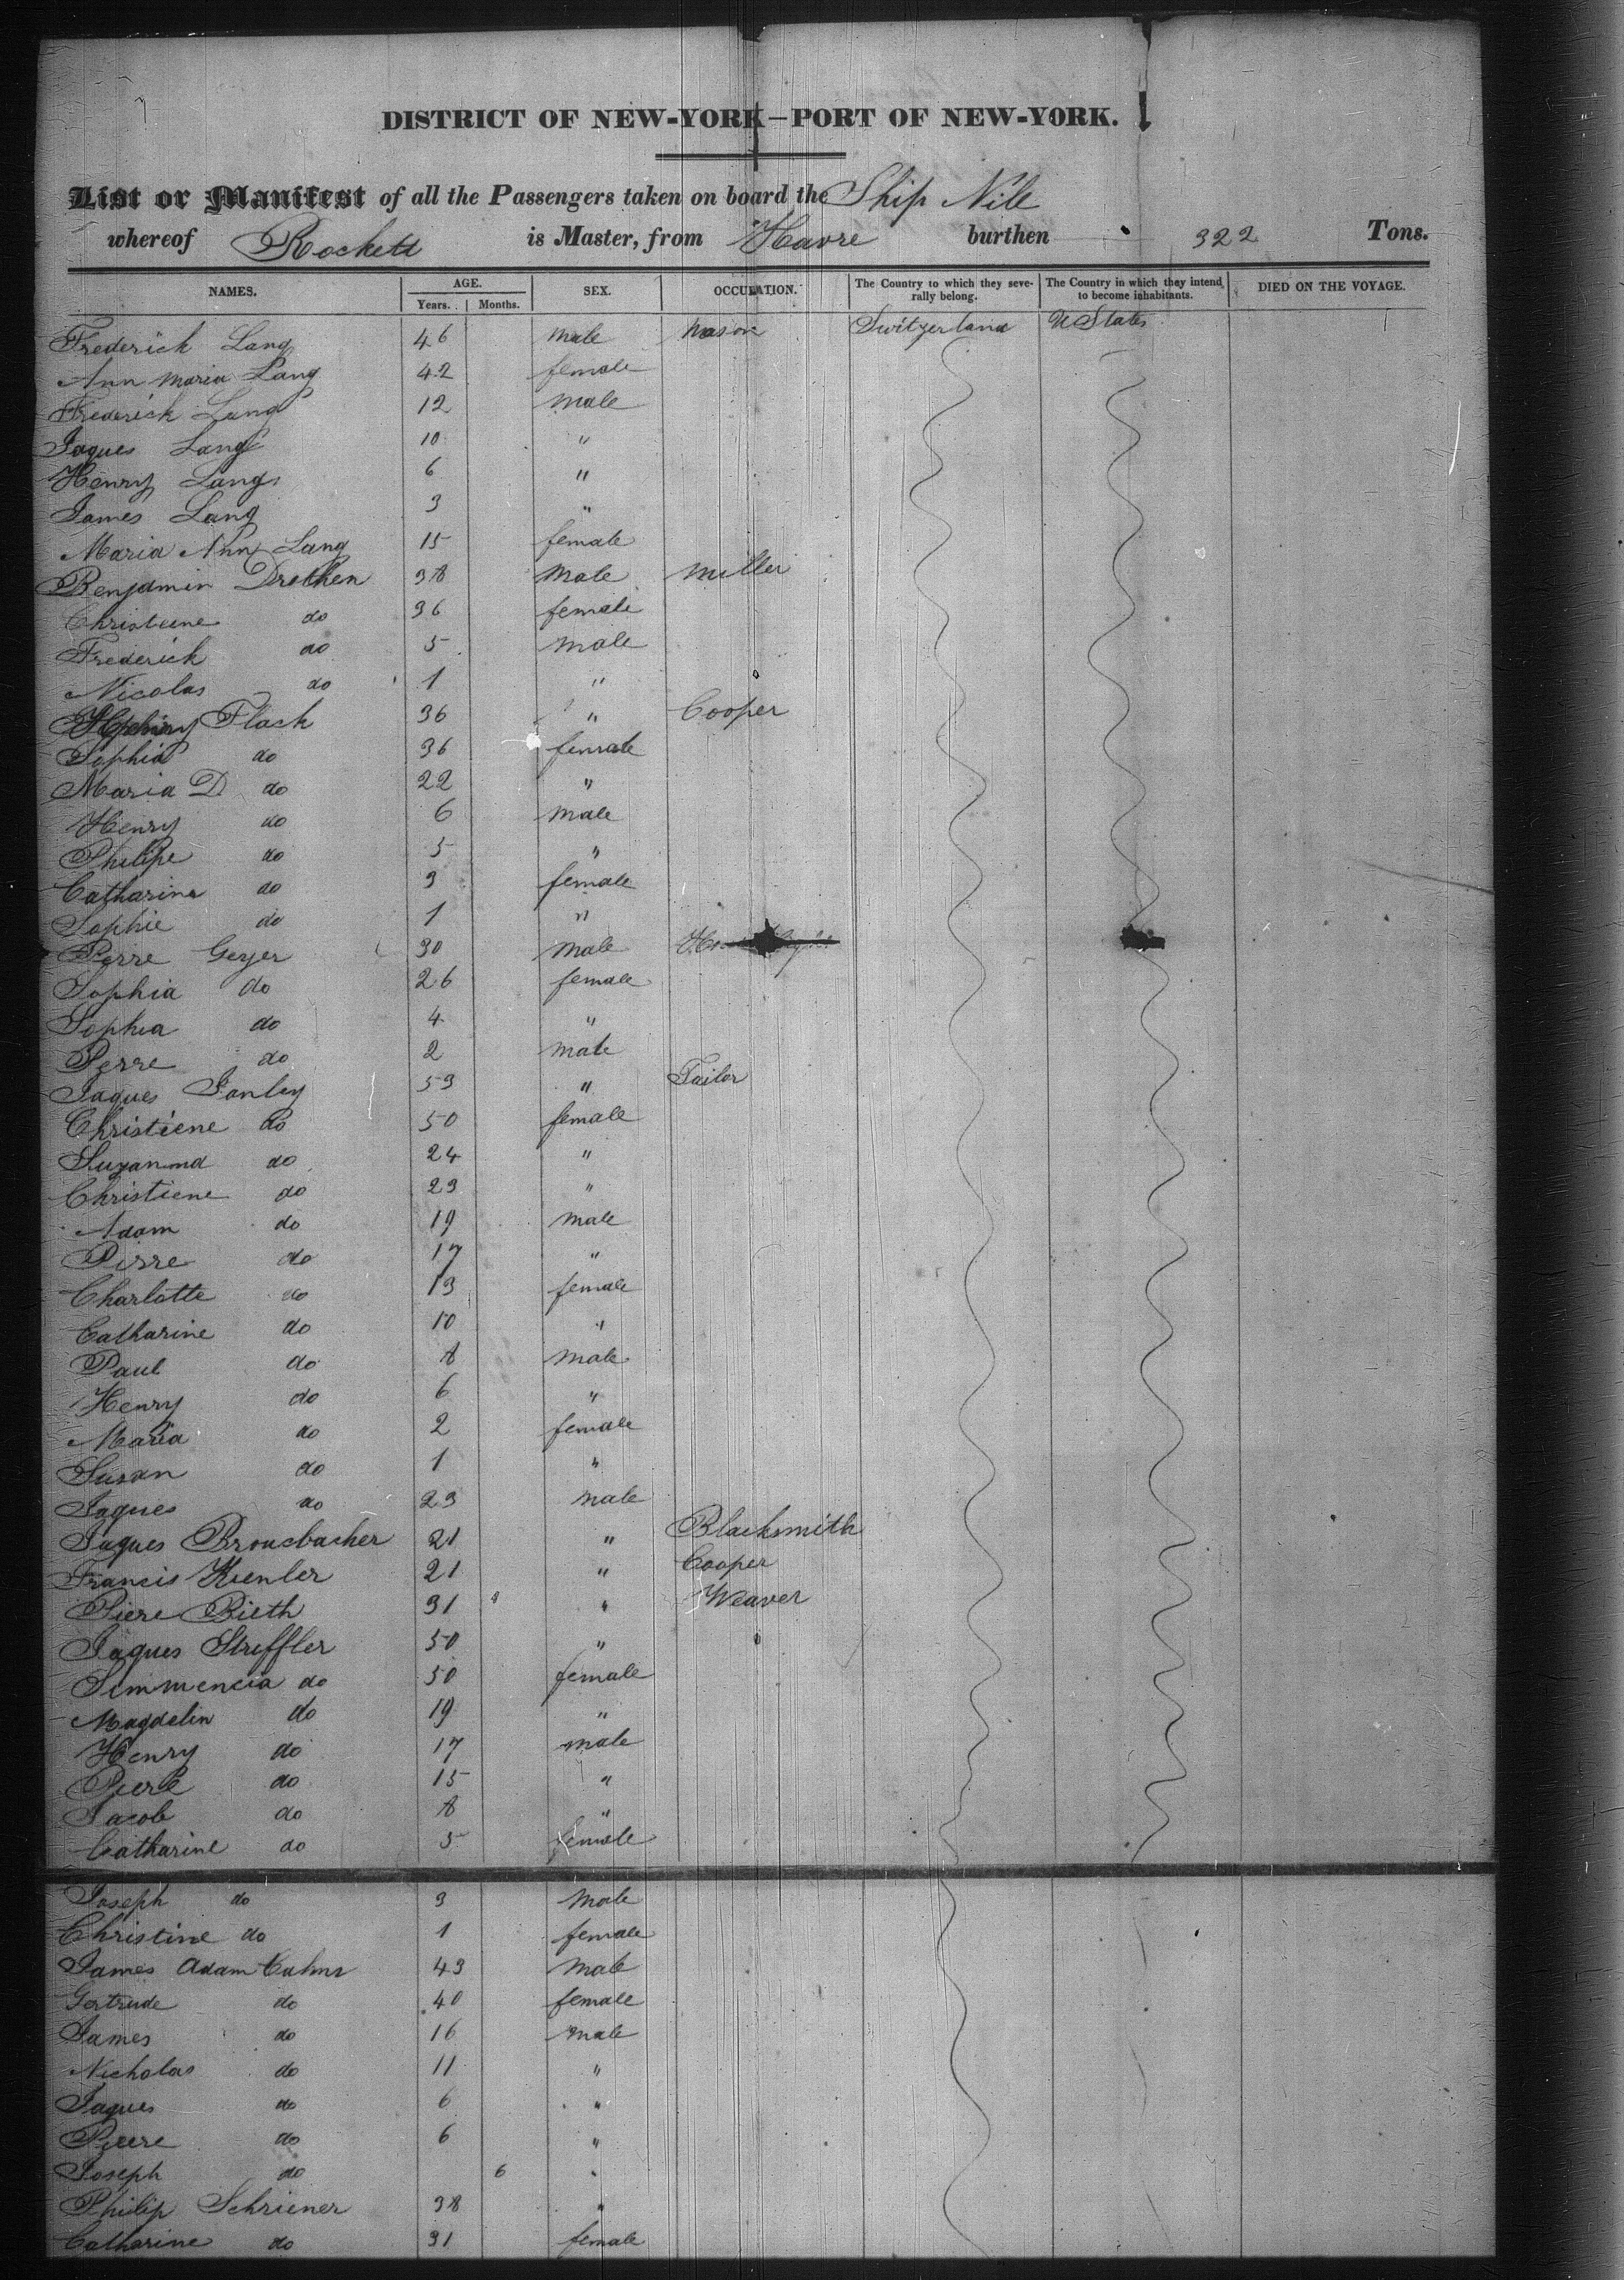 DISTRICT OF NEW-YORK—PORT OF NEW-YORK.
List or Manifest of all the Passengers taken on board the Ship Nile
whereof Rockett is Master, from Havre burthen 322 Tons.
NAMES. AGE. Years. Months. SEX. OCCUPATION. The Country to which they severally belong. The Country in which they intend to become inhabitants. DIED ON THE VOYAGE.
Frederick Lang 46 male Mason Switzerland U States
Ann Maria Lang 42 female
Frederick Lang 12 male
Jaques Lang 10 "
Henry Lang 6 "
James Lang 3 "
Maria Ann Lang 15 female
Benjamin Drethen 38 Male Miller
Christiene do 36 female
Frederick do 5 male
Nicolas do 1 "
Flack 36 " Cooper
Sophia do 36 female
Maria D do 22 "
Henry do 6 male
Philipe do 5 "
Catharina do 3 female
Sophie do 1 "
Perre Geyer 30 Male
Sophia do 26 female
Sophia do 4 "
Perre do 2 male
Jaques Janley 53 " Tailor
Christiene do 50 female
Suzannd do 24 "
Christiene do 23 "
Adam do 19 male
Pirre do 17 "
Charlotte do 13 female
Catharine do 10 "
Paul do 8 male
Henry do 6 "
Maria do 2 female
Susan do 1 "
Jaques do 23 male
Jaques Broucbacher 21 " Blacksmith
Francis Kienler 21 " Cooper
Piere Bieth 31 " Weaver
Jaques Striffler 50 "
Simmencia do 50 female
Magdelin do 19 "
Henry do 17 male
Piere do 15 "
Jacob do 8 "
Catharine do 5 female
Joseph do 3 Male
Christine do 1 female
James Adam Cahns 43 Male
Gertrude do 40 female
James do 16 male
Nicholas do 11 "
Jaques do 6 "
Pierre do 6 "
Joseph do 6 "
Philip Schriener 38 "
Catharine do 31 female